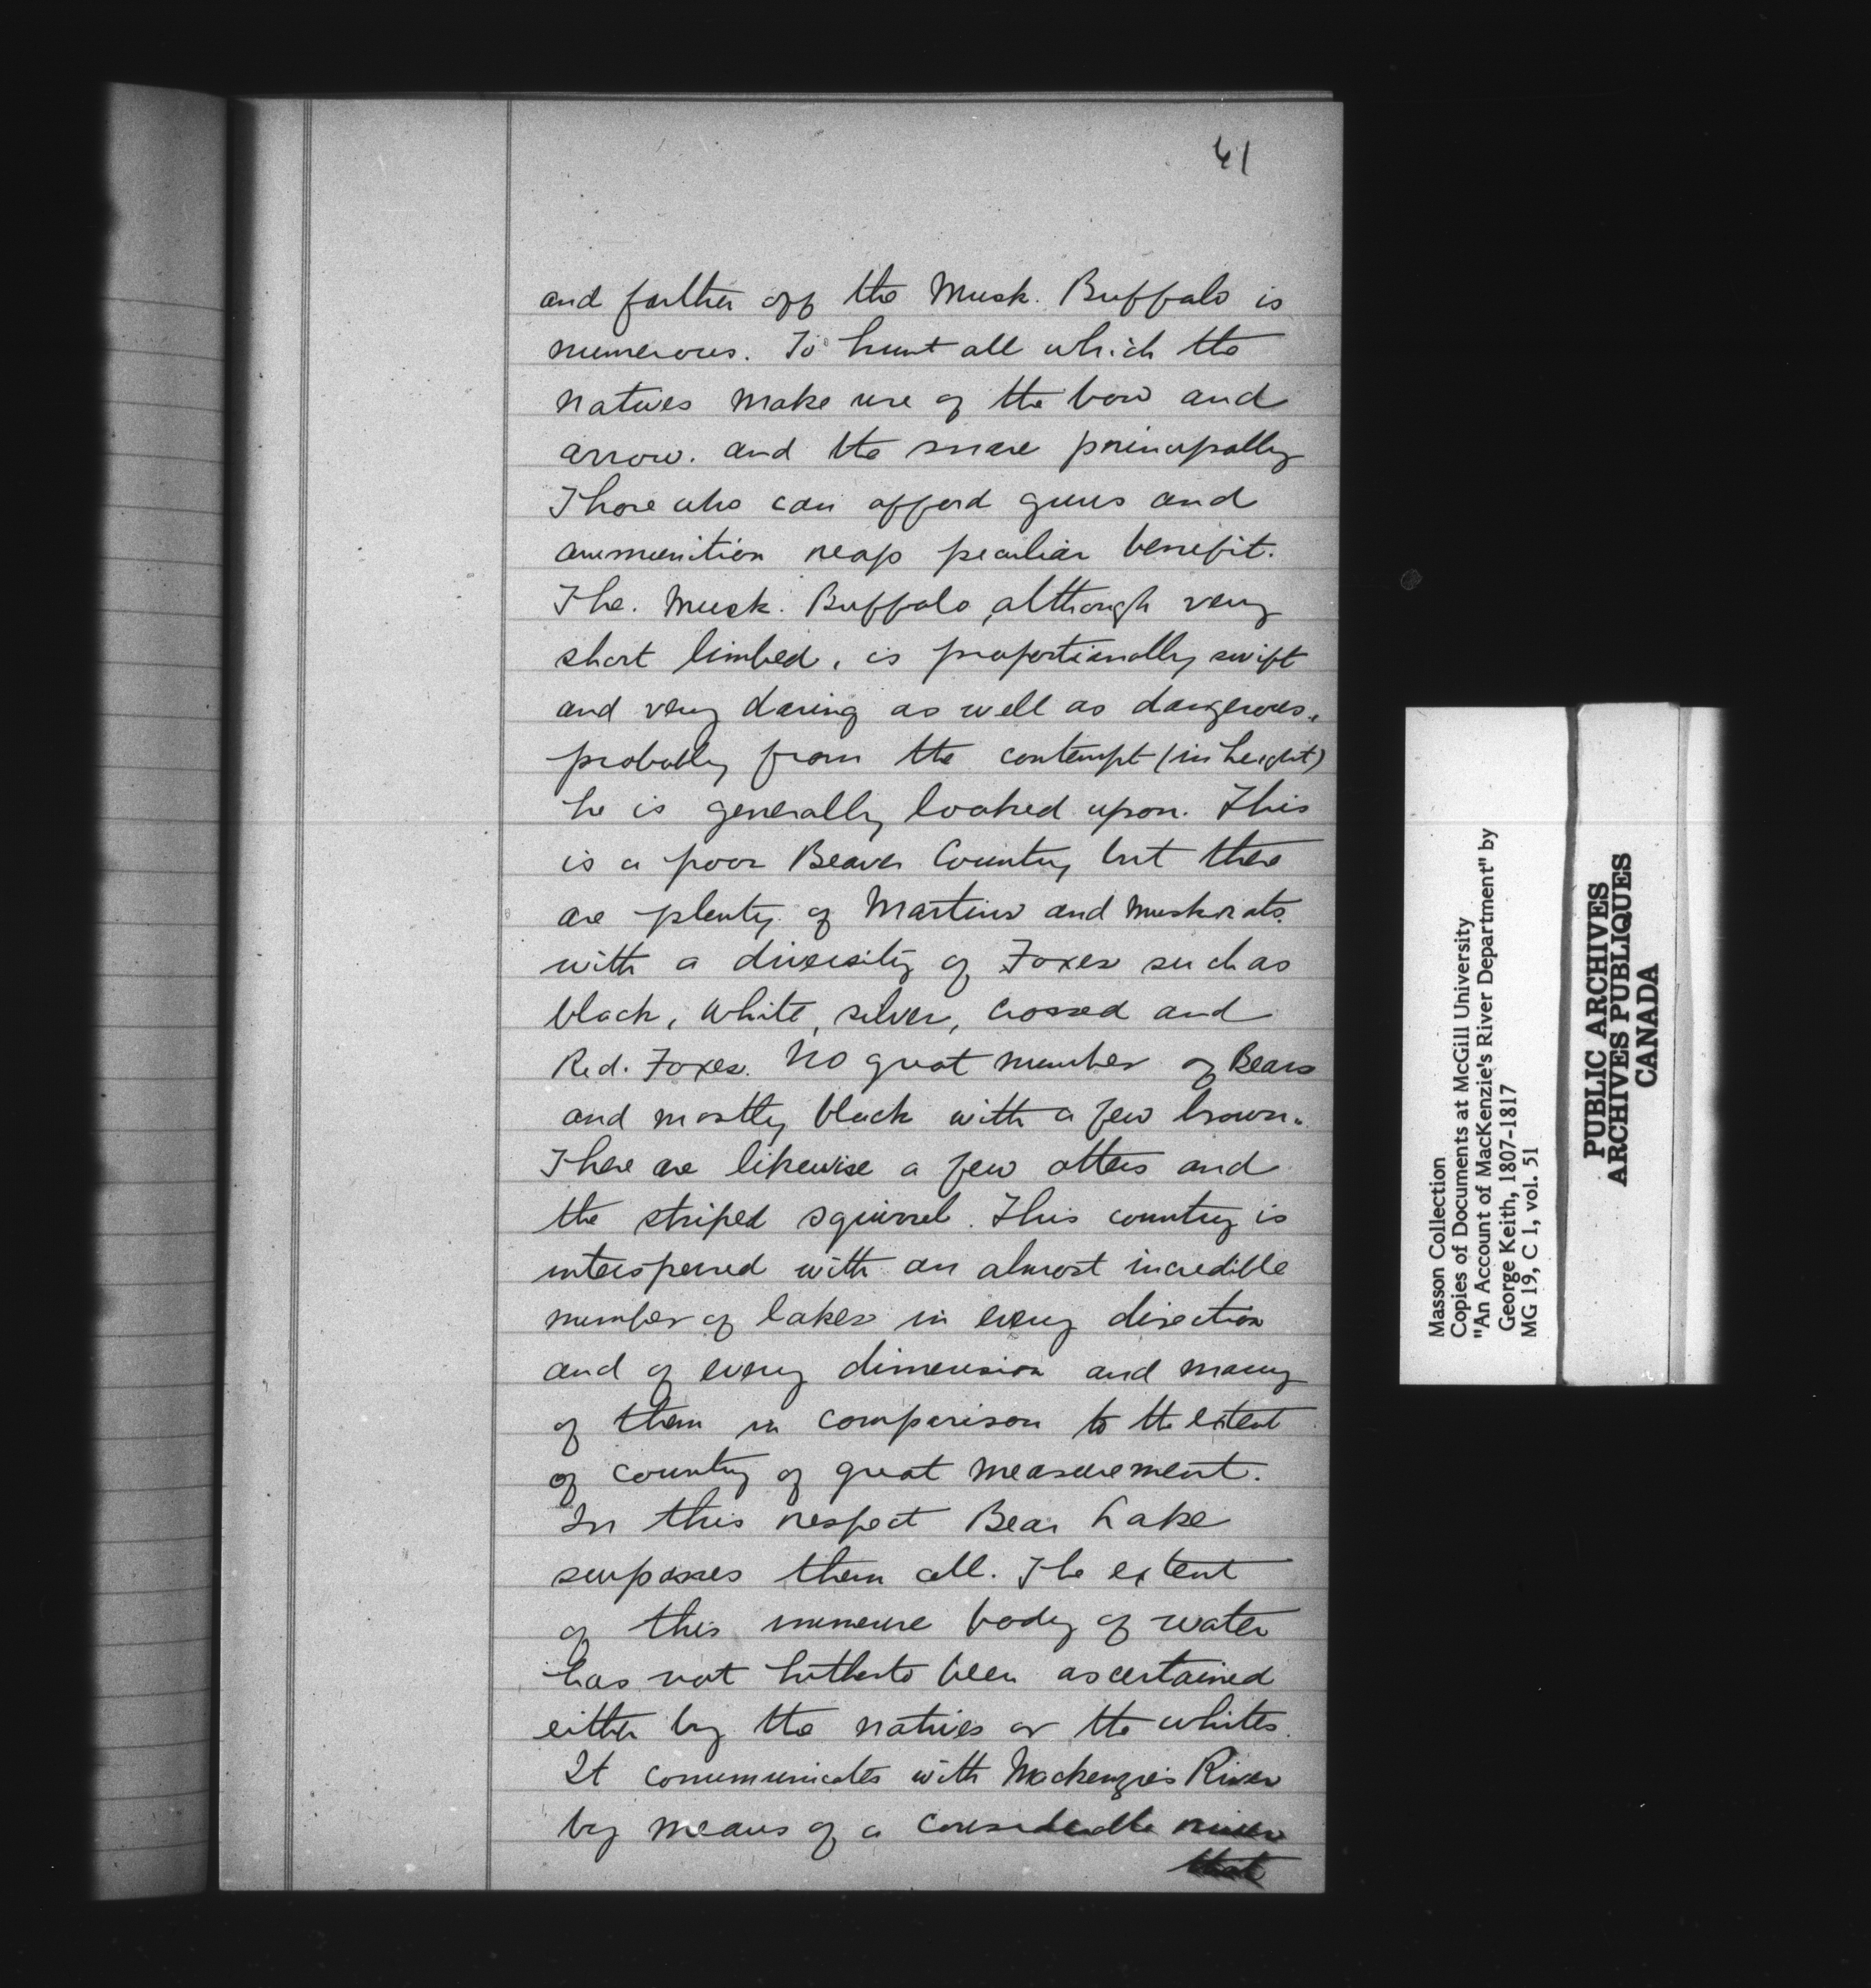 41
and farther off the Musk. Buffalo is
numerous. To hunt all which the
natives make use of the bow and
arrow. and the snare principally
Those who can afford guns and
ammunition reap peculiar benefit.
The. Musk. Buffalo, although very
short limbed, is proportionally swift
and very daring as well as dangerous.
probably from the contempt (in height)
he is generally looked upon. This
is a poor Beaver Country but there
are plenty of Martins and Muskrats.
with a diversity of Foxes such as
black, White, silver, Crossed and
Red. Foxes. No great number of Bears
and mostly black with a few brown.
There are likewise a few otters and
the striped squirrel. This country is
interspersed with an almost incredible
number of lakes in every direction
and of every dimension and many
of them in comparison to the extent
of country of great measurement.
In this respect Bear Lake
surpasses them all. The extent
of this immense body of water
has not hitherto been ascertained
either by the natives or the whites.
It communicates with Mackenzie's River
by means of a considerable river
that
Masson Collection
Copies of Documents at McGill University
"An Account of MacKenzie's River Department" by
George Keith, 1807-1817
MG 19, C 1, vol. 51
PUBLIC ARCHIVES
ARCHIVES PUBLIQUES
CANADA